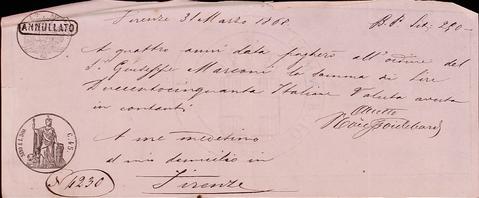 ANNULLATO
Firenze 31 Marzo 1868
A quattro anni data pagherò all'ordine del
S. Giuseppe Marconi la somma di Lire
Duecentocinquanta Italiane Valuta avuta
in contanti
A me medesimo
al mio domicilio in
Firenze
N 4230